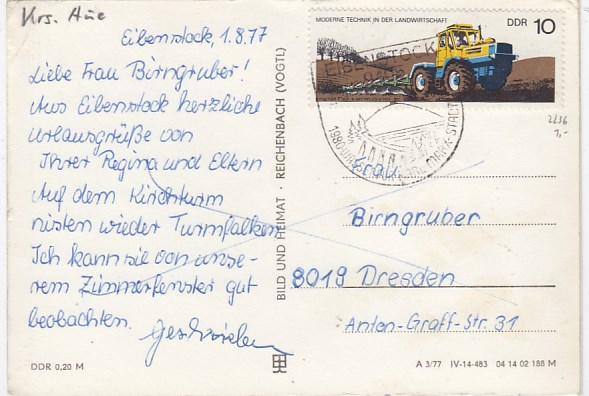 Krs. Aue
Eibenstock, 1.8.77
Liebe Frau Birngruber!
Aus Eibenstock herzliche
Urlausgrüße von
Ihrer Regina und Eltern
Auf dem Kirchturm
nisten wieder Turmfalken.
Ich kann sie von unse-
rem Zimmerfenster gut
beobachten.
DDR 0,20 M
BILD UND HEIMAT · REICHENBACH (VOGTL)
MODERNE TECHNIK IN DER LANDWIRTSCHAFT
DDR 10
EIBENSTOCK
Frau
Birngruber
8019 Dresden
Anton-Graff-Str. 31
A 3/77 IV-14-483 04 14 02 188 M